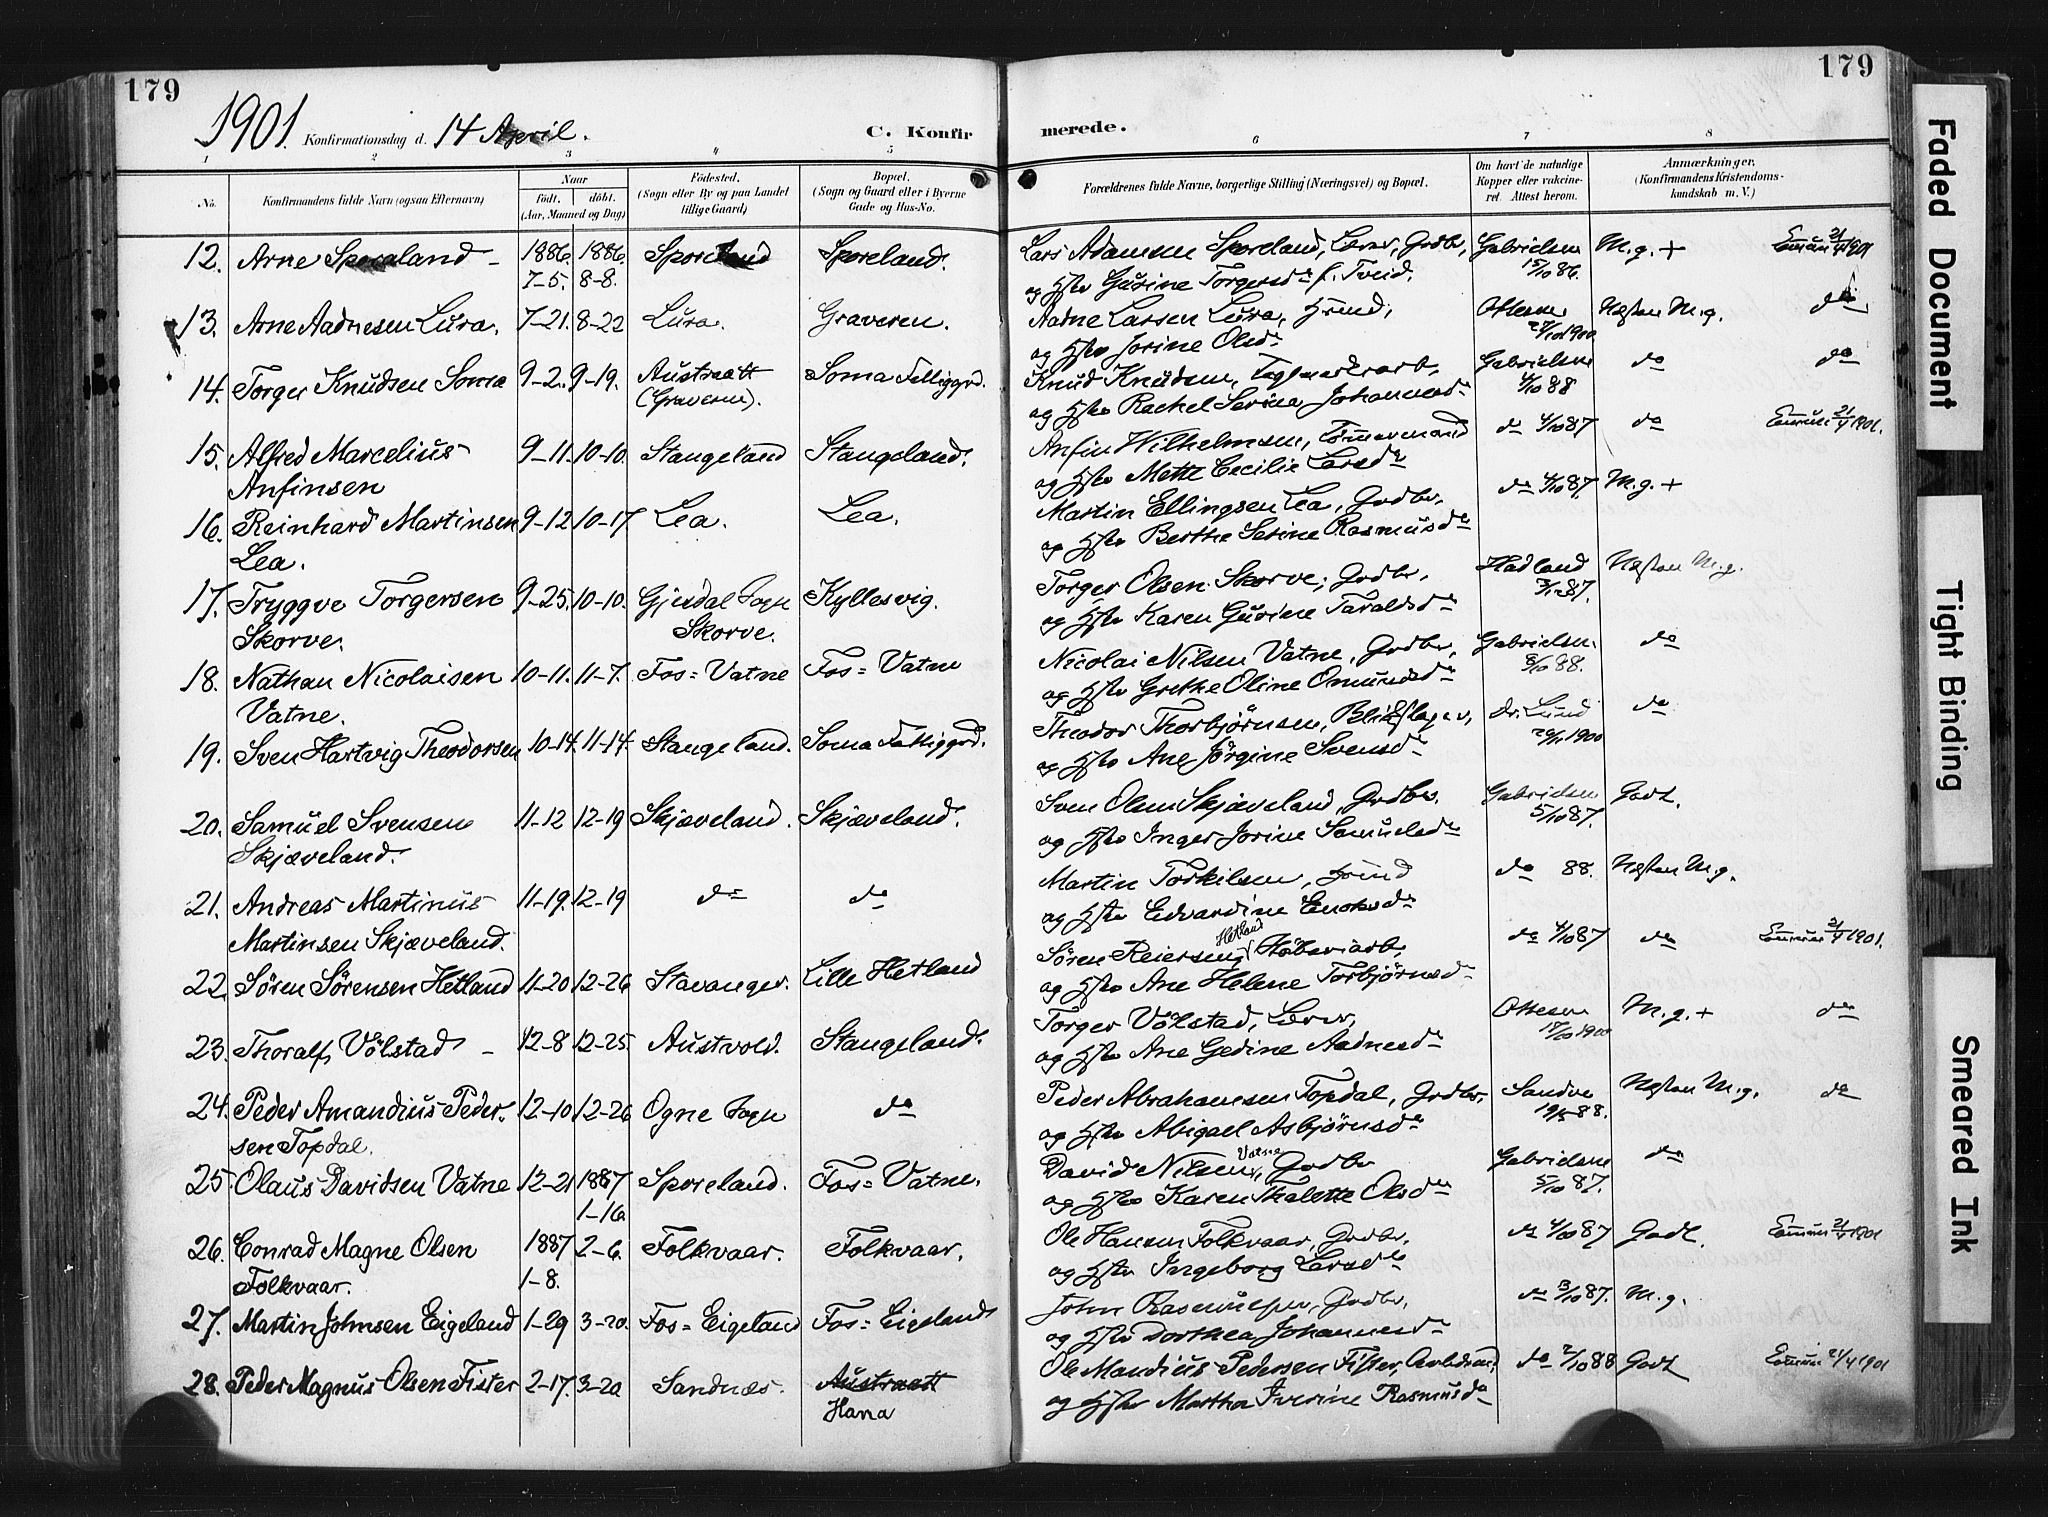 179
179
1901. Konfirmationsdag d. 14 April.
C. Konfirmerede.
1 2 3 4 5 6 7 8
No.
Konfirmandens fulde Navn (ogsaa Efternavn)
Naar
födt. döbt.
(Aar, Maaned og Dag)
Födested.
(Sogn eller By og paa Landet
tillige Gaard)
Bopæl.
(Sogn og Gaard eller i Byerne
Gade og Hus-No.
Forældrenes fulde Navne, borgerlige Stilling (Næringsvei) og Bopæl.
Om havt de naturlige
Kopper eller vakcine-
ret. Attest herom.
Anmærkninger,
(Konfirmandens Kristendoms-
kundskab m. V.)
12. Arne Sporaland 1886. 1886. Sporeland Sporeland. Lars Adamsen Sporeland, Lærer, Grdbr, Gabrielsen M.g. + 21/4 1901
7-5. 8-8. og Hstr Gurine Torgersdr f. Tveid. 15/10 86.
13. Arne Aadnesen Lura. 7-21. 8-22 Lura. Graveren. Aadne Larsen Lura, Hsmd, Ottesen Næsten M.g. do
og Hstr Jorine Olsdr 1900
14. Torger Knudsen Soma 9-2. 9-19. Austraatt Soma Fattiggrd. Knud Knudsen, Teglværksarb, Gabrielsen do do
(Graveren). og Hstr Rachel Serina Johannesdr 4/10 88
15. Alfred Marcelius 9-11. 10-10. Stangeland Stangeland. Anfin Wilhelmsen, Tømmermand do 4/10 87 do 21/4 1901.
Anfinsen og Hstr Mette Cecilie Larsdr
16. Reinhard Martinsen 9-12 10-17. Lea. Lea. Martin Ellingsen Lea, Grdbr, do 4/10 87. M.g. +
Lea. og Hstr Berthe Serine Rasmusdr
17. Tryggve Torgersen 9-25. 10-10. Gjesdal Sogn Kyllesvig. Torger Olsen Skorve, Grdbr, Hadland Næsten M.g.
Skorve. Skorve. og Hstr Karen Gurine Taraldsdr 87.
18. Nathan Nicolaisen 10-11. 11-7. Fos=Vatne Fos=Vatne Nicolai Nilsen Vatne, Grdbr, Gabrielsen. do
Vatne. og Hstr Grethe Oline Omundsdr 8/10 88.
19. Sven Hartvig Theodorsen 10-14. 11-14. Stangeland. Soma Fattiggrd. Theodor Thorbjørnsen, Blikslager, dr. Lund do
og Hstr Ane Jørgine Svensdr 1900
20. Samuel Svensen 11-12 12-19 Skjæveland. Skjæveland. Sven Olsen Skjæveland, Grdbr. Gabrielsen Godt.
Skjæveland. og Hstr Inger Jorine Samuelsdr 5/10 87.
21. Andreas Martinus 11-19. 12-19 do do Martin Torkilsen, Hsmd do 88. Næsten M.g.
Martinsen Skjæveland. og Hstr Edvardine Enoksdr
22. Søren Sørensen Hetland 11-20 12-26 Stavanger. Lille Hetland Søren Reiersen Hetland, Støberiarb, do 4/10 87 do 1901.
og Hstr Ane Helene Torbjørnsdr
23. Thoralf Völstad 12-8 12-25. Austvold. Stangeland. Torger Völstad, Lærer, Ottesen M.g. + do
og Hstr Ane Gedine Aadnesdr 1900
24. Peder Amandius Peder- 12-10 12-26 Ogne Sogn do Peder Abrahamsen Topdal, Grdbr, Sandve Næsten M.g. do
sen Topdal. og Hstr Abigael Asbjørnsdr 88.
25. Olaus Davidsen Vatne 12-21 1887 Sporeland. Fos=Vatne. David Nilsen Vatne, Grdbr Gabrielsen do
1-16. og Hstr Karen Thalette Olsdr 5/10 87.
26. Conrad Magne Olsen 1887 2-6. Folkvaar. Folkvaar. Ole Hansen Folkvaar, Grdbr, do 4/10 87 Godt. 21/4 1901
Folkvaar. 1-8. og Hstr Ingeborg Larsdr
27. Martin Johnsen Eigeland 1-29 3-20. Fos=Eigeland Fos=Eigeland John Rasmussen, Grdbr, do 3/10 87. M.g.
og Hstr Dorthea Johannesdr
28. Peder Magnus Olsen Fister 2-17. 3-20 Sandnæs. Austraatt Ole Mandius Pedersen Fister, Arbdsmd, do 2/10 88 Godt 21/4 1901
Hana og Hstr Martha Iverine Rasmusdr
Faded Document
Tight Binding
Smeared Ink